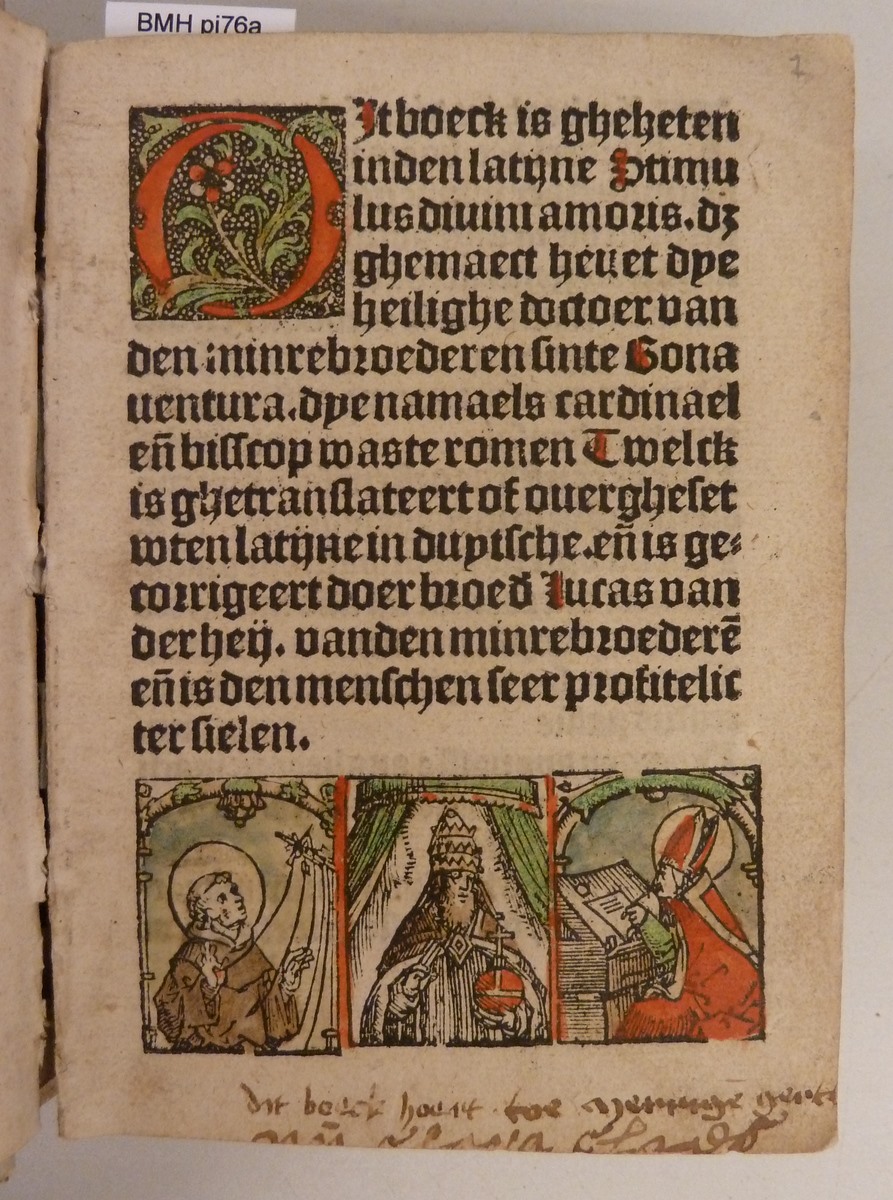 BMH pi76a
1
DIt boeck is gheheten
inden latijne Stimu
lus diuini amoris. dʒ
ghemaect heuet dye
heilighe doctoer van
den minrebroederen sinte Bona
uentura. dye namaels cardinael
en̄ bisscop was te romen Twelck
is ghetranslateert of ouergheset
wten latijne in duytsche. en̄ is ge⸗
corrigeert doer broed̄ Lucas van
der heij. vanden minrebroederē
en̄ is den menschen seer profitelic
ter sielen.
dit boeck hoert toe